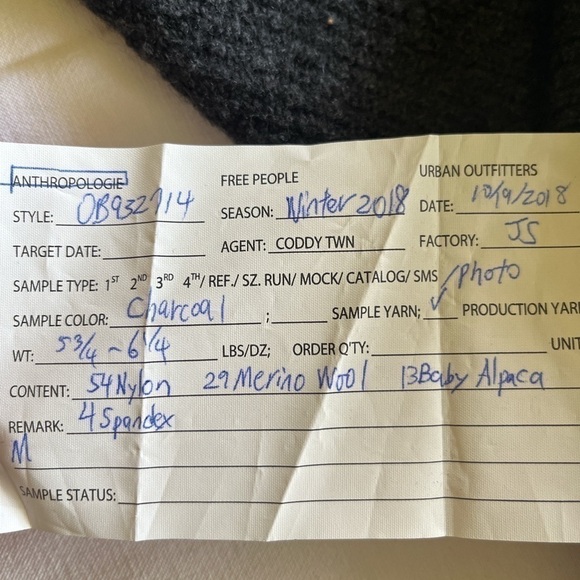 ANTHROPOLOGIE FREE PEOPLE URBAN OUTFITTERS
STYLE: OB932714 SEASON: Winter 2018 DATE: 10/9/2018
TARGET DATE: AGENT: CODDY TWN FACTORY: JS
SAMPLE TYPE: 1ST 2ND 3RD 4TH/ REF./ SZ. RUN/ MOCK/ CATALOG/ SMS /Photo
SAMPLE COLOR: Charcoal ; SAMPLE YARN; ✓ PRODUCTION YAR
WT: 5 3/4 ~ 6 1/4 LBS/DZ; ORDER Q'TY: UNIT
CONTENT: 54 Nylon 29 Merino Wool 13 Baby Alpaca
REMARK: 4 Spandex
M
SAMPLE STATUS: